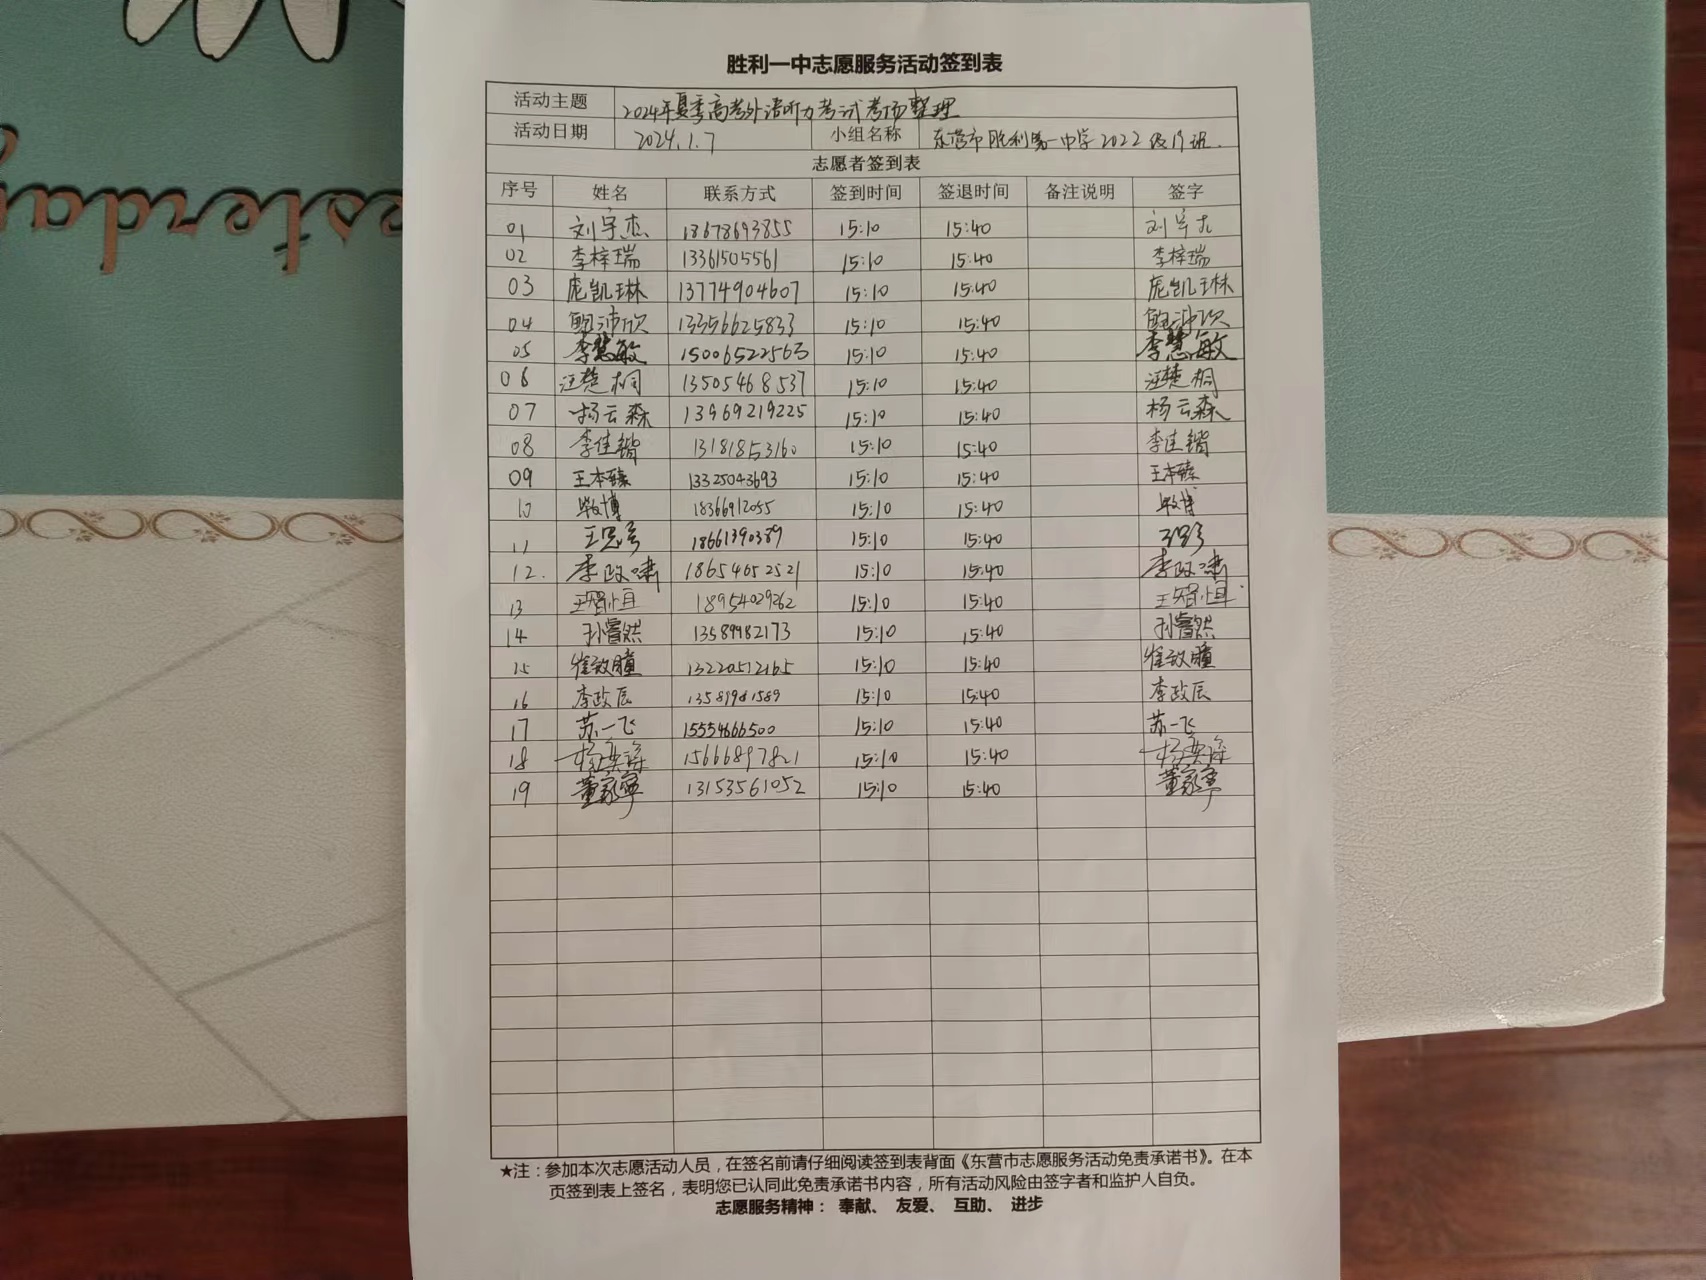 esterday
胜利一中志愿服务活动签到表
活动主题 2024年夏季高考外语听力考试考场整理
活动日期 2024.1.7 小组名称 东营市胜利第一中学2022级17班.
志愿者签到表
序号 姓名 联系方式 签到时间 签退时间 备注说明 签字
01 刘宇杰 18678693855 15:10 15:40 刘宇杰
02 李梓瑞 13361505561 15:10 15:40 李梓瑞
03 庞凯琳 13774904607 15:10 15:40 庞凯琳
04 鲍沛欣 13356625833 15:10 15:40 鲍沛欣
05 李慧敏 15006522563 15:10 15:40 李慧敏
06 汪楚桐 13505468537 15:10 15:40 汪楚桐
07 杨云森 13969219225 15:10 15:40 杨云森
08 李佳锴 13181853160 15:10 15:40 李佳锴
09 王本臻 13325043693 15:10 15:40 王本臻
10 18366912055 15:10 15:40
11 18661390389 15:10 15:40
12. 李政啸 18654652521 15:10 15:40 李政啸
13 王智恒 18954029262 15:10 15:40 王智恒
14 孙睿然 13589982173 15:10 15:40 孙睿然
15 崔敬瞳 13220512165 15:10 15:40 崔敬瞳
16 李政辰 13589981589 15:10 15:40 李政辰
17 苏一飞 15554666500 15:10 15:40 苏一飞
18 15666897821 15:10 15:40
19 董家宁 13153561052 15:10 15:40 董家宁
★注：参加本次志愿活动人员，在签名前请仔细阅读签到表背面《东营市志愿服务活动免责承诺书》。在本
页签到表上签名，表明您已认同此免责承诺书内容，所有活动风险由签字者和监护人自负。
志愿服务精神： 奉献、 友爱、 互助、 进步